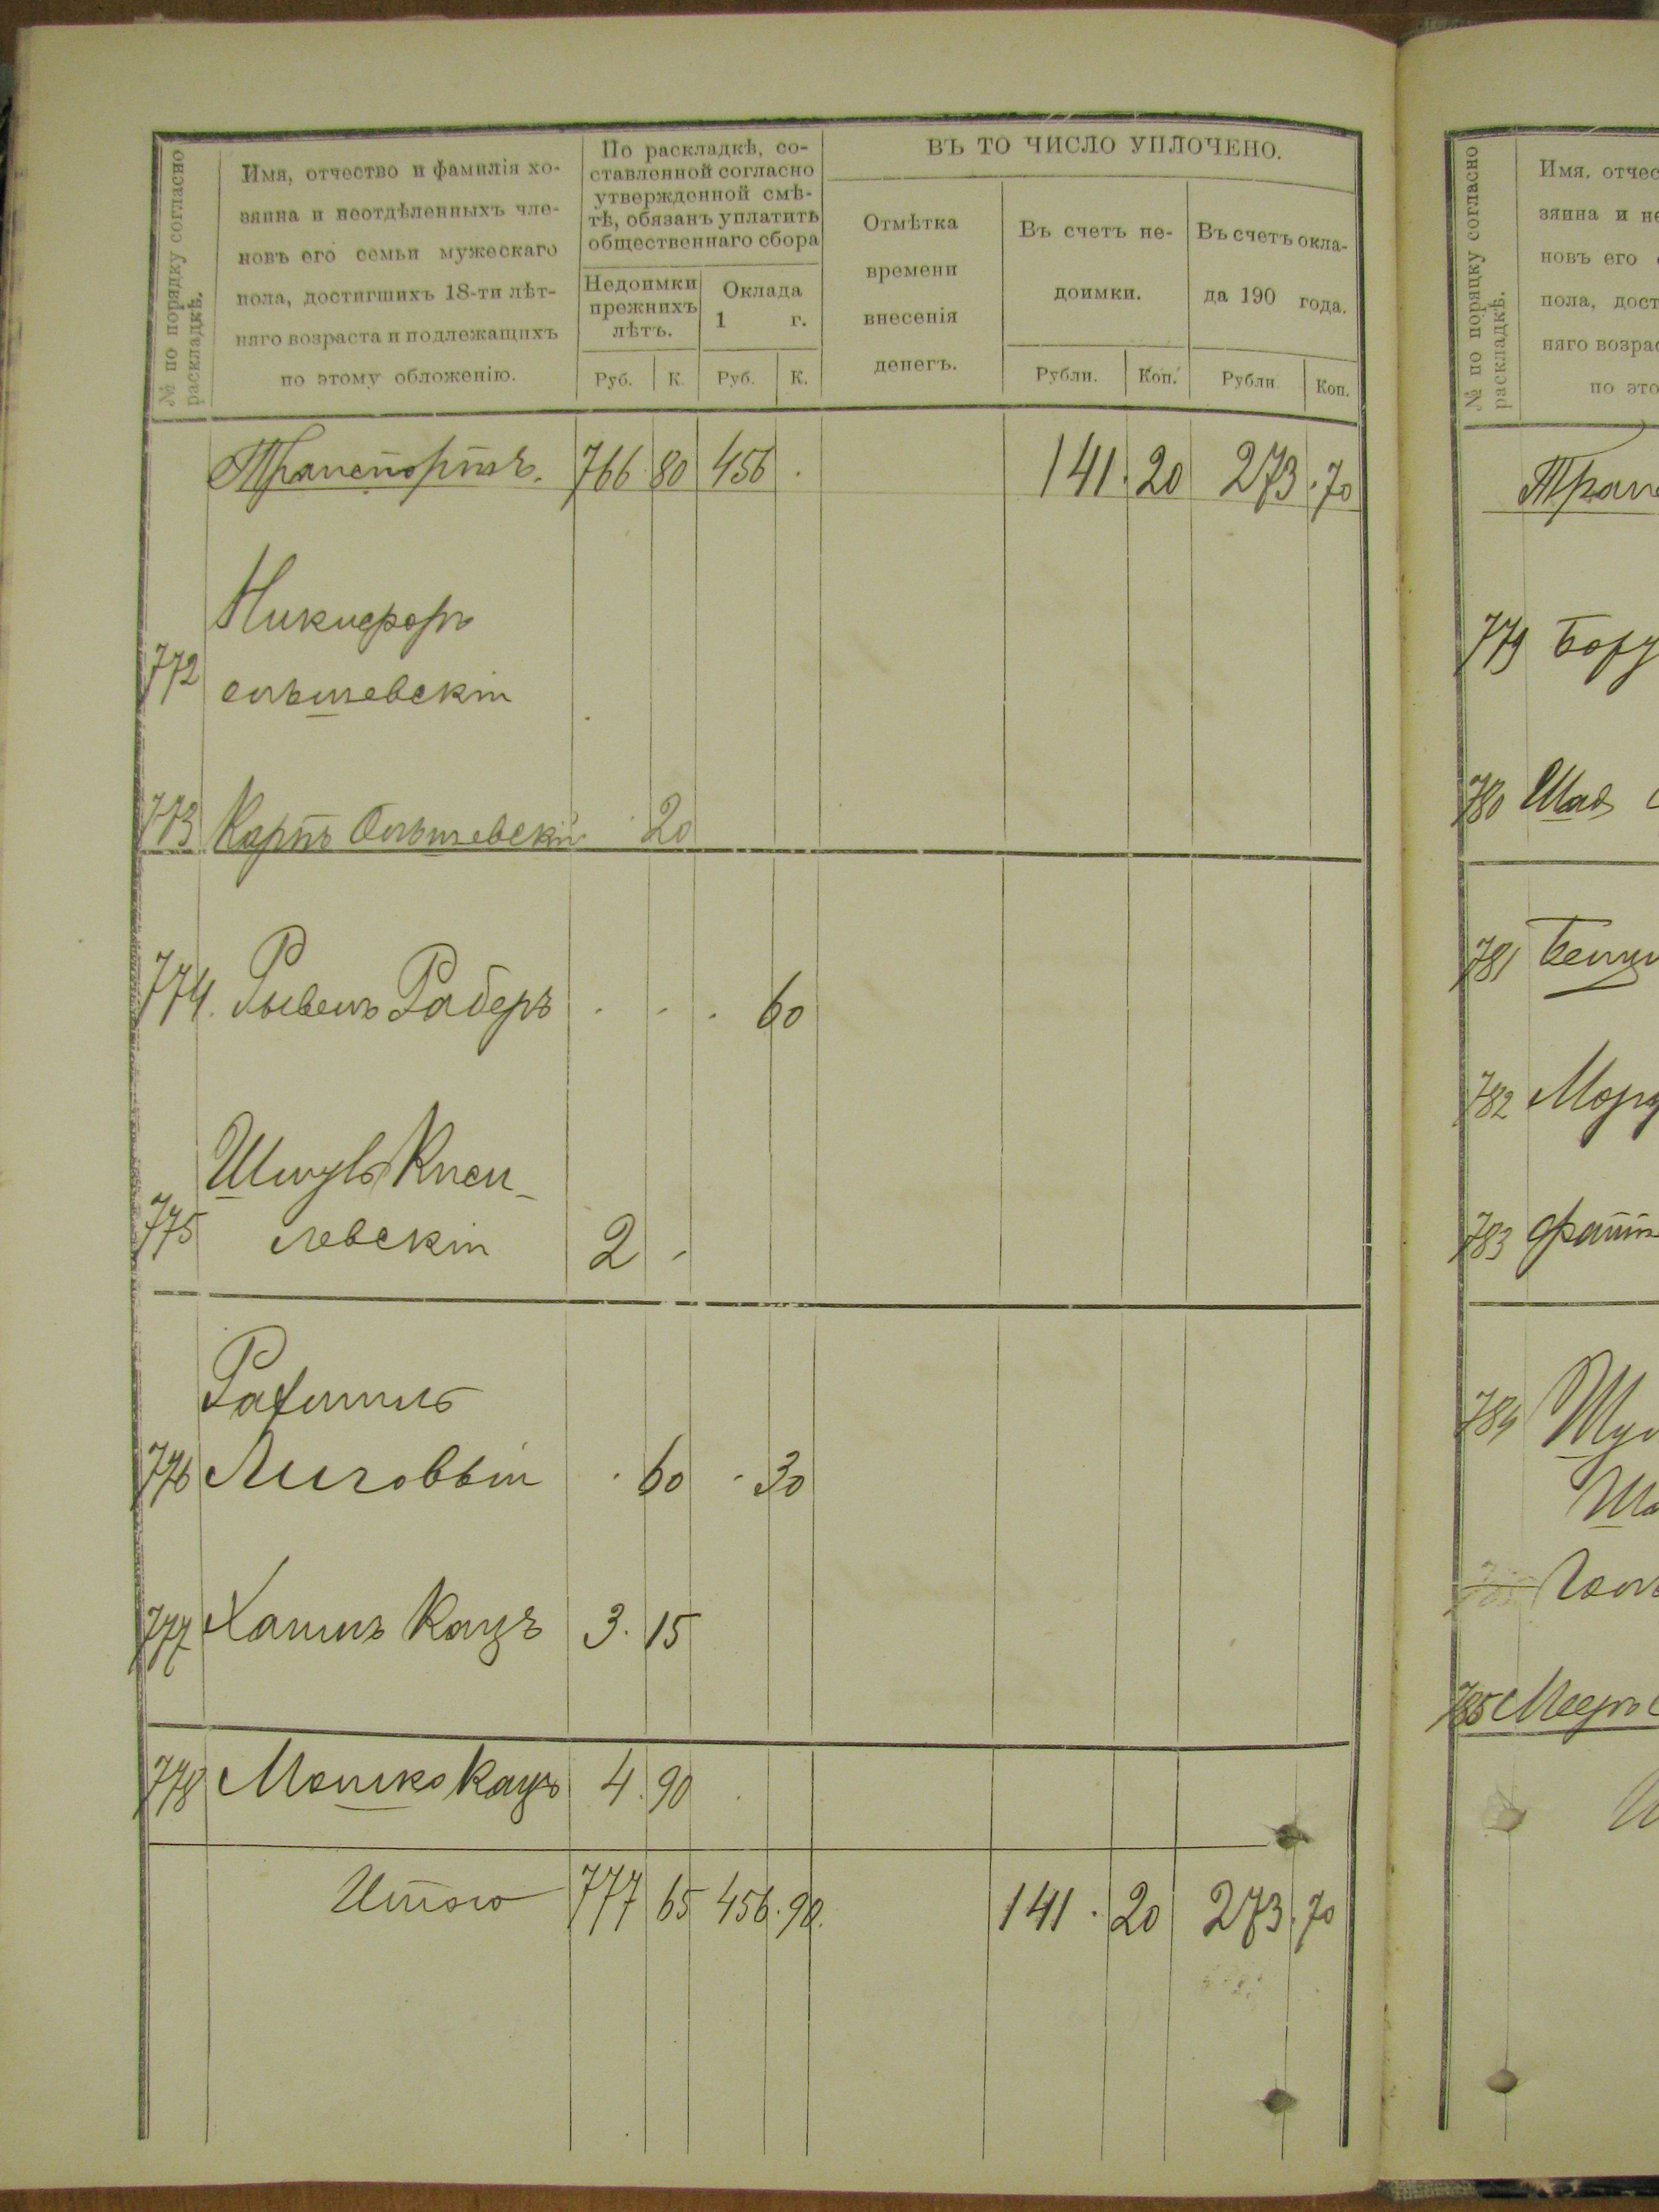 № по порядку согласно
раскладкѣ.
Имя, отчество и фамилія хо-
зяина и неотдѣленныхъ чле-
новъ его семьи мужескаго
пола, достигшихъ 18-ти лѣт-
няго возраста и подлежащихъ
по этому обложенію.
По раскладкѣ, со-
ставленной согласно
утвержденной смѣ-
тѣ, обязанъ уплатить
общественнаго сбора
Недоимки
прежнихъ
лѣтъ.
Оклада
1 г.
Руб. К. Руб. К.
ВЪ ТО ЧИСЛО УПЛОЧЕНО.
Отмѣтка
времени
внесенія
денегъ.
Въ счетъ не-
доимки.
Въ счетъ окла-
да 190 года.
Рубли. Коп. Рубли Коп.
Транспортъ. 766 80 456 . 141. 20 273.70
Никифоръ
772
773 Карпъ 20
774. Рабервъ . . . 60
775 Киси-
левскій 2 -
776 Лиговый . 60 - 30
777 Хаимъ Кацъ 3. 15
778 Мошко Кацъ 4. 90 .
Итого 777 65 456. 90. 141. 20 273. 70
№ по порядку согласно
раскладкѣ.
Имя, отчес
зяина и не
новъ его
пола, дост
няго возрас
по это
Тран
779 Бору
780
781
782 Морд
783
784
785